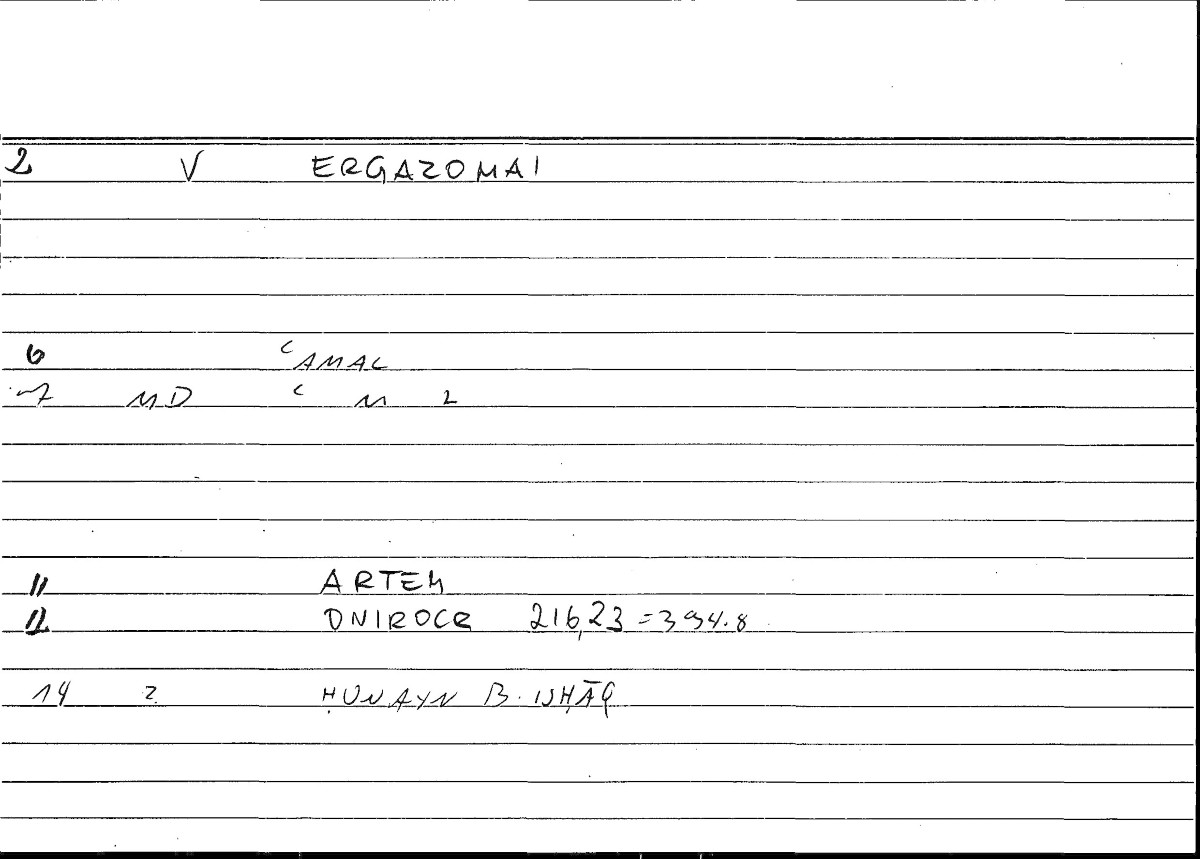 2 V ERGAZOMAI
6 ʿAMAL
7 MD ʿ M L
11 ARTEM
12 ONIROCR 216,23 = 394.8
14 2 ḤUNAYN B. ISḤĀQ